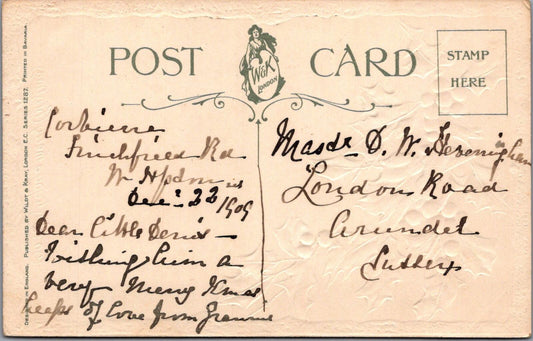 POST CARD
W&K
LONDON
STAMP
HERE
DESIGNED IN ENGLAND. PUBLISHED BY WILDT & KRAY, LONDON E.C. SERIES 1287. PRINTED IN BAVARIA.
Corbiere
Finchfield Rd
Dec: 22
1909
Dear Little Denis —
Wishing him a
very Merry Xmas
heaps of love from Grannie
D. W. Heveningham
London Road
Arundel
Sussex